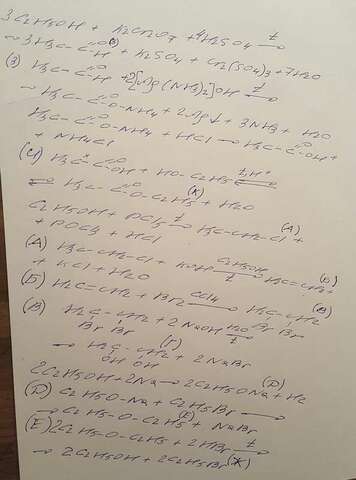 3C2H5OH + K2Cr2O7 + 4H2SO4 t→
→ 3H3C-C=O-H (З) + K2SO4 + Cr2(SO4)3 + 7H2O
(З) H3C-C=O-H + 2[Ag(NH3)2]OH t→
→ H3C-C=O-O-NH4 + 2Ag↓ + 3NH3 + H2O
H3C-C=O-O-NH4 + HCl → H3C-C=O-OH +
+ NH4Cl
(И) H3C-C=O-OH + HO-C2H5 t,H+ ⇌
⇌ H3C-C=O-O-C2H5 (К) + H2O
C2H5OH + PCl5 t→ H3C-CH2-Cl (А) +
+ POCl3 + HCl
(А) H3C-CH2-Cl + KOH C2H5OH t→ H2C=CH2 (Б) +
+ KCl + H2O
(Б) H2C=CH2 + Br2 CCl4→ H2C-CH2 (В)
Br Br
(В) H2C-CH2 + 2NaOH H2O t→
Br Br
→ H2C-CH2 (Г) + 2NaBr
OH OH
2C2H5OH + 2Na → 2C2H5ONa (Д) + H2
(Д) C2H5-O-Na + C2H5Br →
→ C2H5-O-C2H5 (Е) + NaBr
(Е) 2C2H5-O-C2H5 + 2HBr t→
→ 2C2H5OH + 2C2H5Br (Ж)